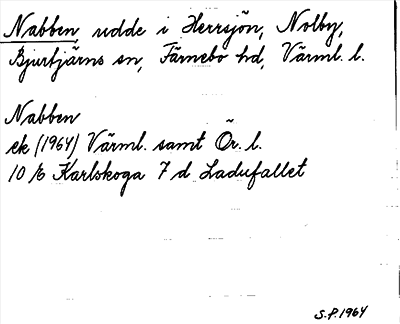 Nabben, udde i Herrsjön, Nolby,
Bjurtjärns sn, Färnebo hd, Värml. l.
Nabben
ek (1964) Värml. samt Ör. l.
10 E Karlskoga 7 d Ladufallet
S.P. 1964